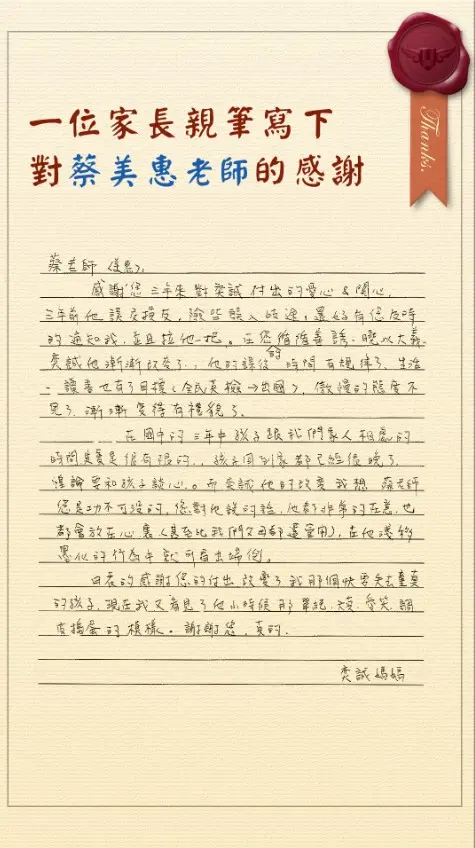 Thanks.
一位家長親筆寫下
對蔡美惠老師的感謝
蔡老師
感謝您三年來對奕誠付出的愛心&關心,
三年前他誤交損友,險些誤入歧途,還好有您及時
的通知我,並且拉他一把。在您循循善誘、曉以大義,
奕誠他漸漸改變了,他的課後的時間有規律了,生活
、讀書也有了目標(全民英檢→出國),傲慢的態度不
見了,漸漸變得有禮貌了。
在國中的三年中孩子跟我們家人相處的
時間其實是很有限的,孩子回到家都已經很晚了,
遑論要和孩子談心。而奕誠他的改變我想蔡老師
您是功不可沒的,您對他說的話,他都非常的在意,也
都會放在心裏(甚至比我們父母都還管用),在他潛移
默化的行為中就可看出端倪。
由衷的感謝您的付出 改變了我那個快要失去童真
的孩子,現在我又看見了他小時候那單純、愛笑、調
皮搗蛋的模樣。謝謝您,真的.
奕誠媽媽